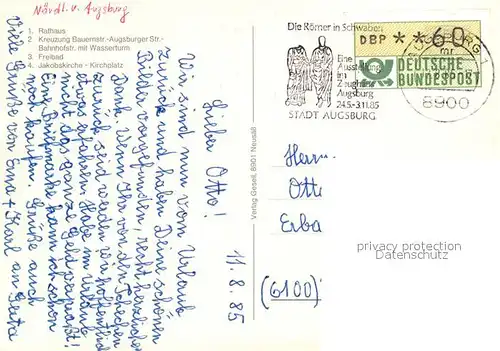 Nördl. v. Augsburg
1. Rathaus
2 Kreuzung Bauernstr.-Augsburger Str.-
Bahnhofstr. mit Wasserturm
3. Freibad
4. Jakobskirche - Kirchplatz
11.8.85
Lieber Otto!
Wir sind nun vom Urlaub
zurück und haben Deine schönen
Bilder vorgefunden, recht herzlichen
Dank. Wenn Ihr von den Tschechen
zurück seid werden wir hoffentlich
etwas erfahren. Habe im Urlaub
nicht das ganze Geld verpraßt!
Eine Briefmarke kann ich schon
noch kaufen. Grüße auch
Viele Grüße von Erna + Karl an Gerta
Verlag Gessel, 8901 Neusäß
Die Römer in Schwaben
Eine
Ausstellung
im
Zeughaus
Augsburg
24.5.-3.11.85
STADT AUGSBURG
DBP **60
DEUTSCHE
BUNDESPOST
AUGSBURG 1
8900
Herrn
Otto
Erba
(6100)
privacy protection
Datenschutz